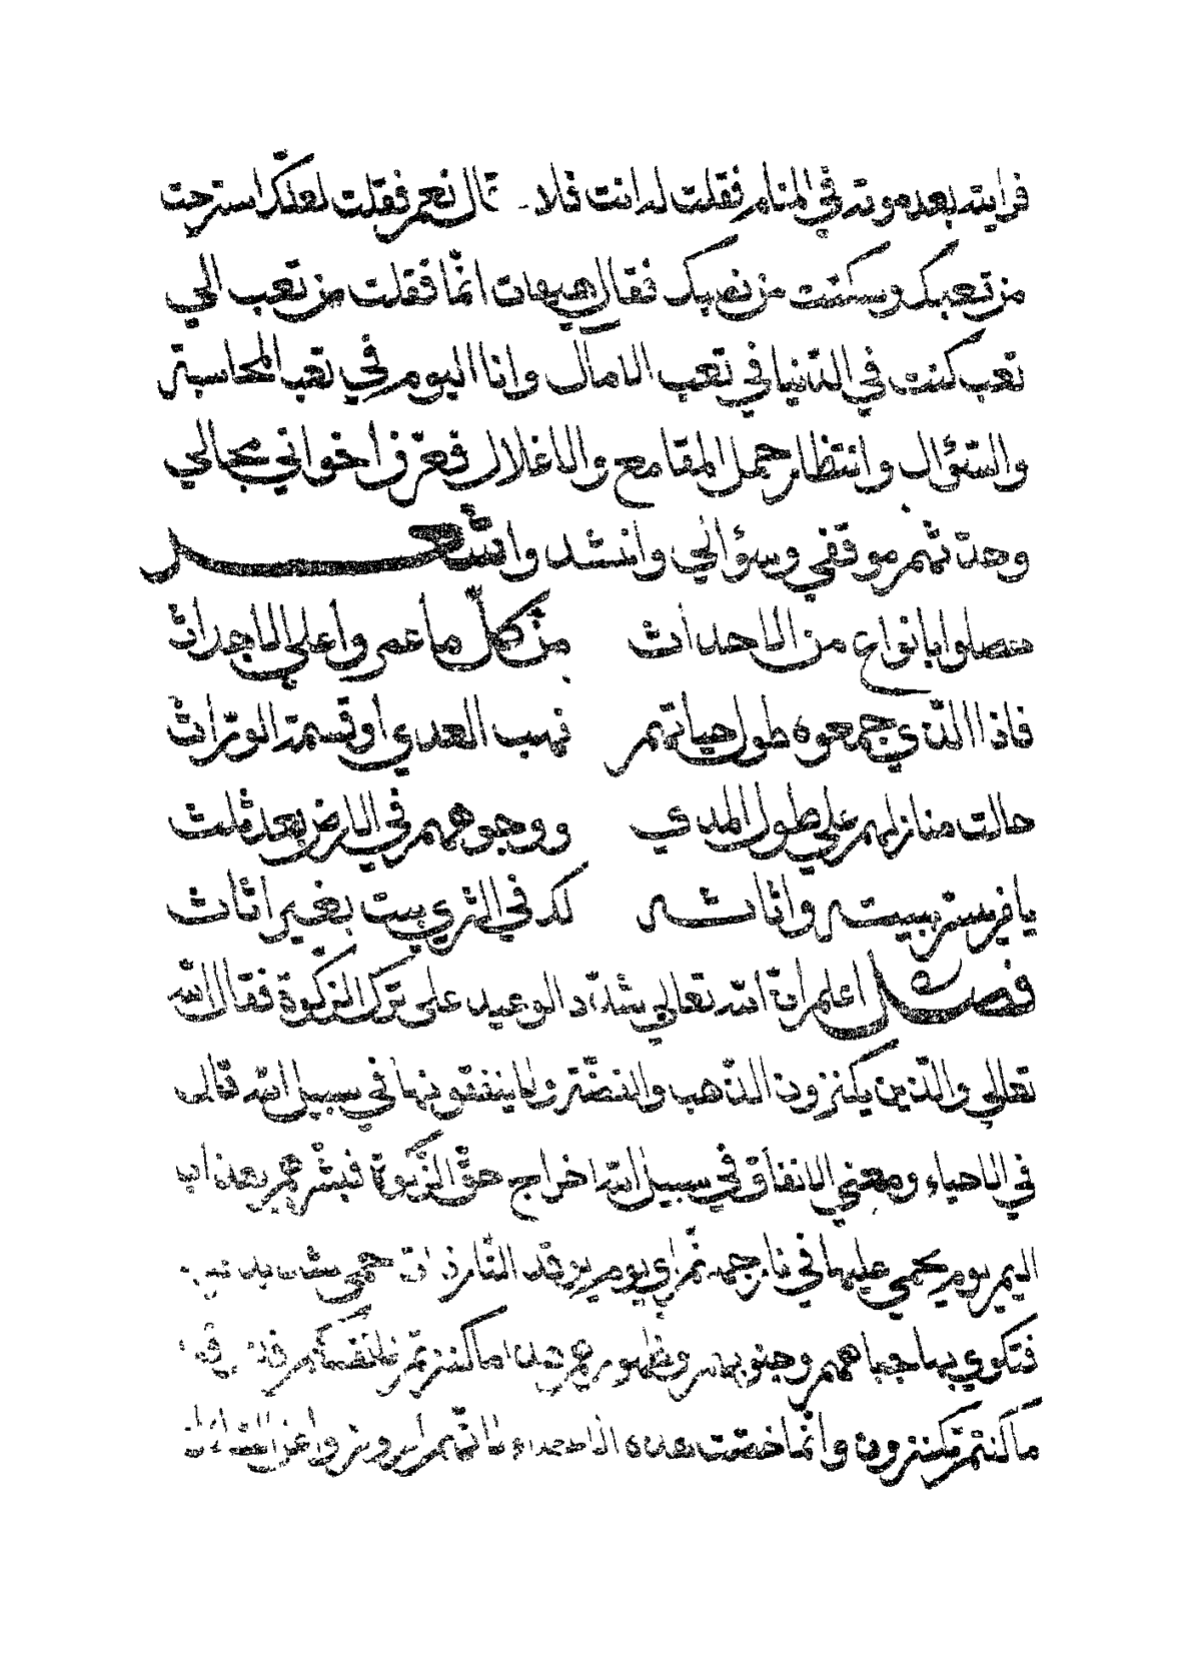 فرايته بعد موته في المنام فقلت له انت فلان قال نعم فقلت لعلك استرحت
من تعبك وسكنت من نصبك فقال هيهات انما فقلت من تعب الي
تعب كنت في الدنيا في تعب الامال وانا اليوم في تعب المحاسبة
والسؤال وانتظار حمل المقامع والاغلال فعرف اخواني بحالي
وحدة ثم موقفي وسؤالي وانشد واشعر
حصلوا بانواع من الاحداث من كل ما عمروا علي الاجداث
فاذا الذي جمعوه طول حياتهم نهب العدي او قسمة الوراث
حالت منازلهم علي طول المدي ووجوههم في الارض بعد ثلث
يا فرستر ببيته واثاثه لك في الثري بيت بغير اثاث
فصل اعلم ان الله تعالي شدد الوعيد على ترك الزكوة فقال الله
تعالي والذين يكنزون الذهب والفضة ولا ينفقونها في سبيل الله قال
في الاحياء ومعني الانفاق في سبيل الله اخراج حق الزكوة فبشرهم بعذاب
اليم يوم يحمي عليها في نار جهنم اي يوم يوقد النار ذات حمي شديد
فتكوي بها جباههم وجنوبهم وظهورهم هذا ما كنزتم لانفسكم فذوقوا
ما كنتم تكنزون وانما خصت هذه الاعضاء لانهم ازوروا عن الفقراء